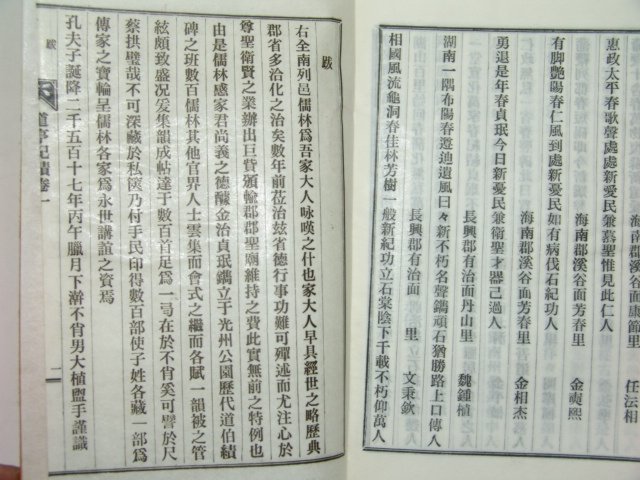 惠政太平春歌聲處處新愛民兼慕聖惟見此仁人
海南郡溪谷面康節里 任法相
有脚艷陽春仁風到處新愛民如有病伐石紀功人
海南郡溪谷面芳春里 金奭熙
勇退是年春貞珉今日新愛民兼衛聖才器己過人
海南郡溪谷面芳春里 金相杰
湖南一隅布陽春遵迪遺風日々新不朽名聲鐫頑石猶勝路上口傳人
長興郡有治面丹山里 魏鍾植
相國風流龜洞春佳林芳樹一般新紀功立石棠陰下千載不朽仰萬人
長興郡有治面 里 文秉欽
跋
右全南列邑儒林爲吾家大人咏嘆之什也家大人早具經世之略歷典
郡省多治化之治矣數年前莅治玆省德行事功難可殫述而尤注心於
尊聖衛賢之業辦出巨貲頒輸郡郡聖廟維持之費此實無前之特例也
由是儒林感家君尚義之德醵金治貞珉鐫立于光州公園歷代道伯績
碑之班數百儒林其他官界人士雲集而會式之繼而各賦一韻被之管
絃頗致盛况爰集韻成帖達于數百首足爲一弓在於不肖奚可譬於尺
蔡拱璧哉不可深藏於私篋乃付手民印得數百部使子姓各藏一部爲
傳家之寶輸呈儒林各家爲永世講誼之資焉
孔夫子誕降二千五百十七年丙午臘月下澣不肖男大植盥手謹識
跋
道亭記蹟卷一
一